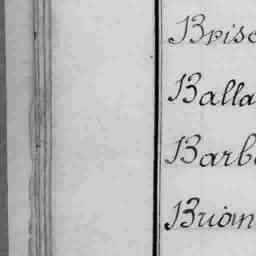 Brisc
Balla
Barb
Brian